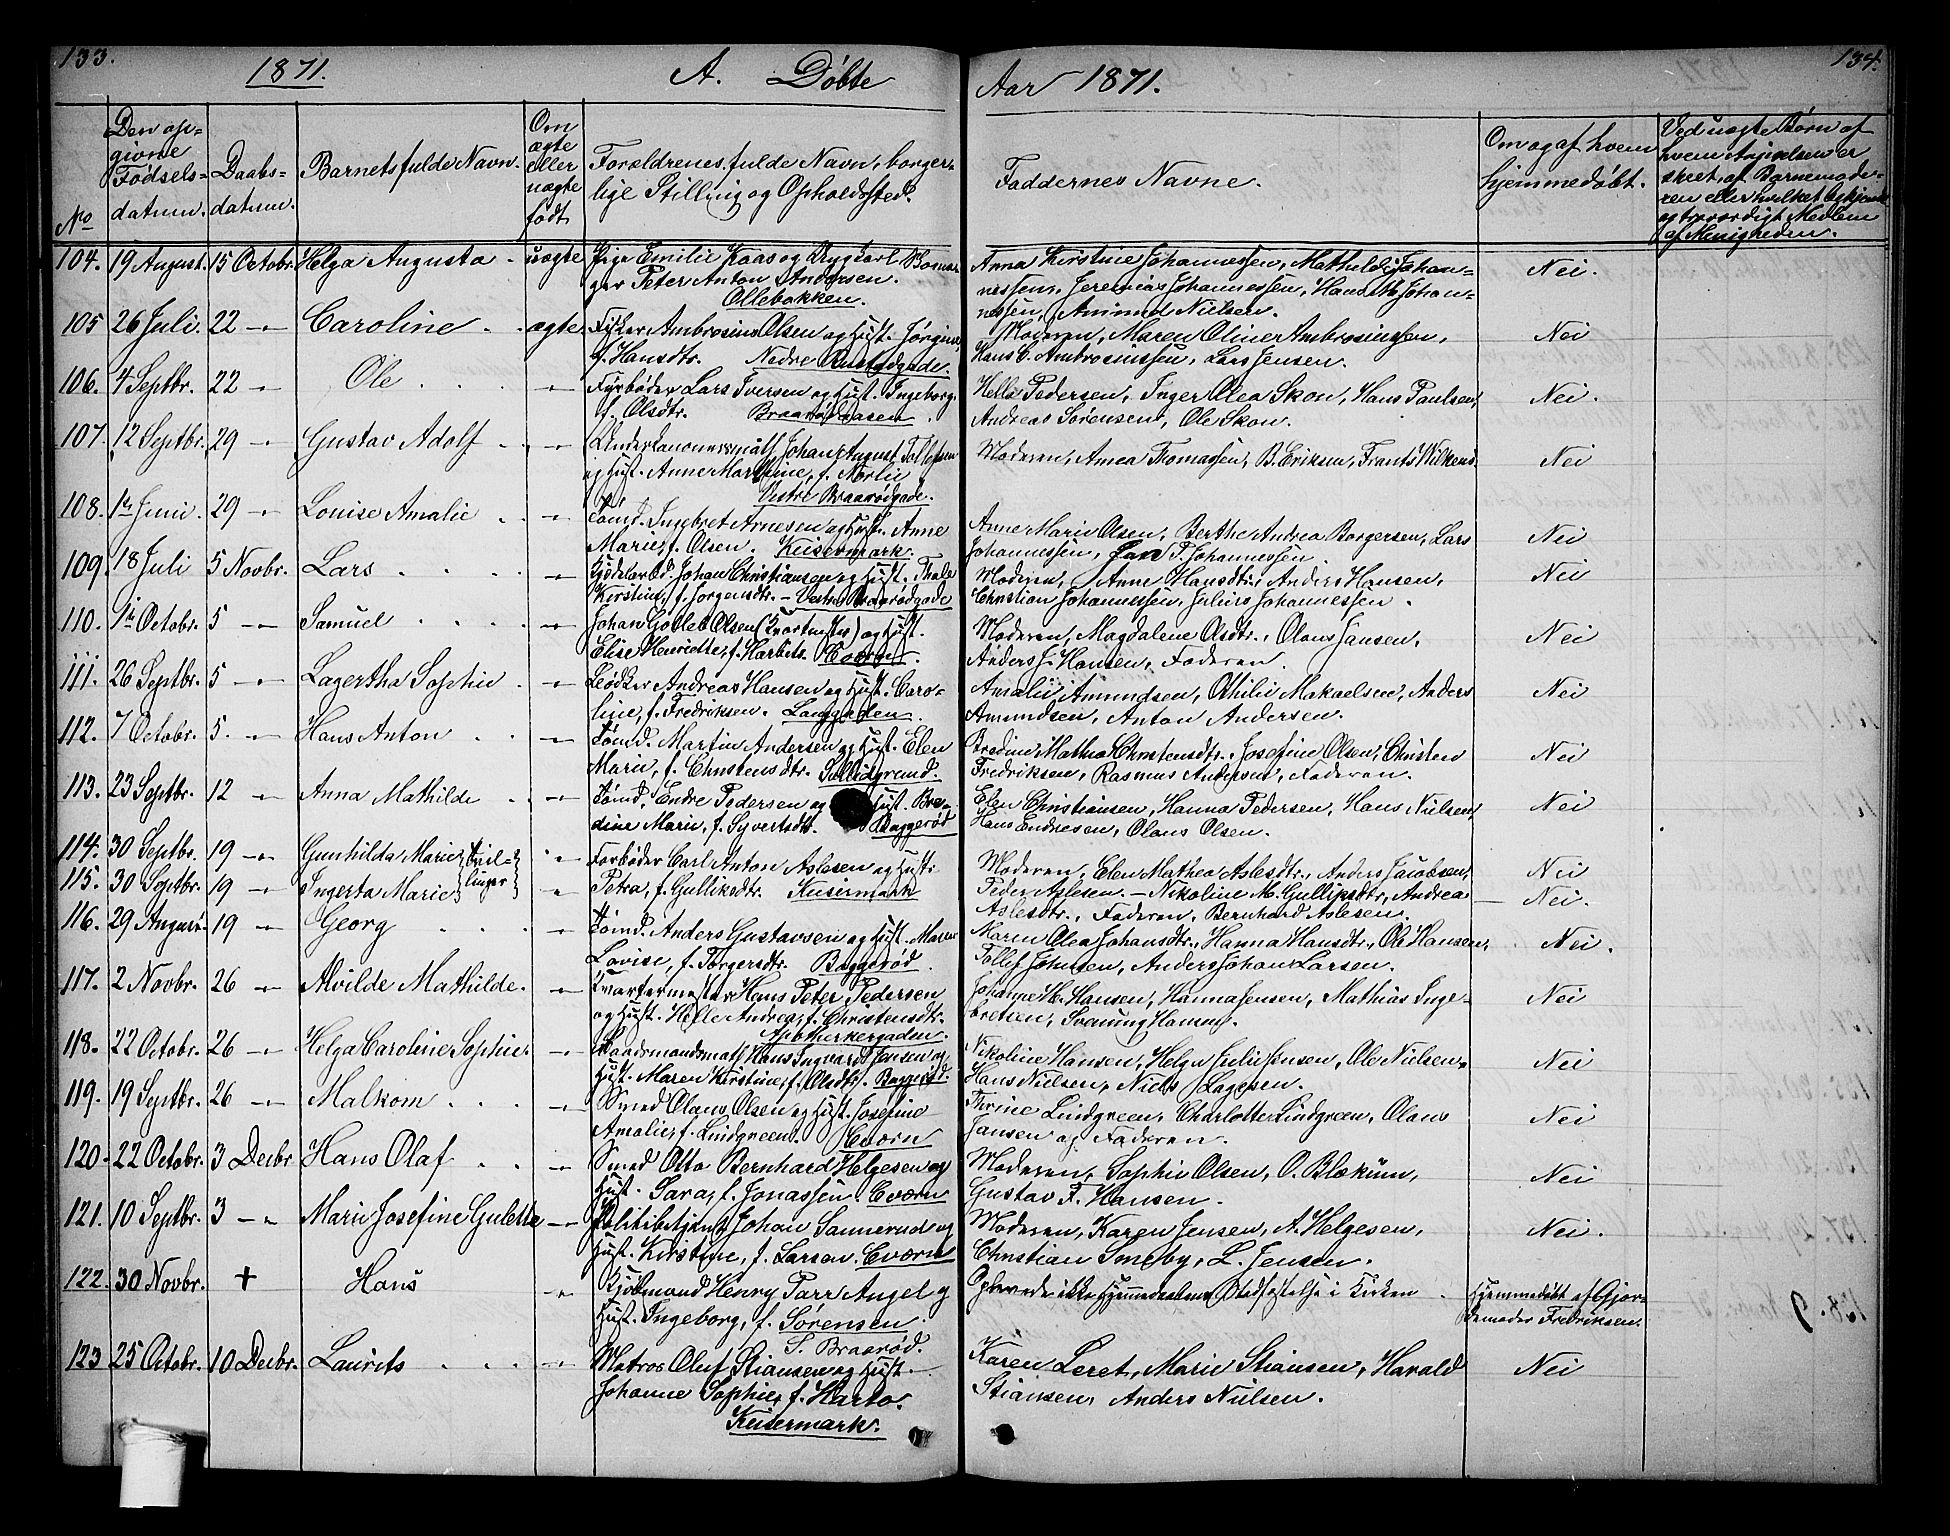 133.
1871.
A. Døbte
Aar 1871.
134.
No
Den op-
givne
Fødsels-
datum.
Daabs-
datum.
Barnets fulde Navn.
Om
ægte
eller
uægte
født
Forældrenes fulde Navn, borger-
lige Stilling og Opholdssted.
Faddernes Navne.
Om og af hvem
hjemmedøbt.
Ved uægte Børn af
hvem Angivelsen er
skeet, af Barnemode-
ren eller hvilket
og troværdigt Medlem
af Menigheden.
104. 19 August. 15 Octobr. Helga Augusta - uægte Pige Emilie Kaas og Ungkarl
Peter Anton Andersen.
Ollebakken.
Anna Kirstine Johannessen, Mathilde Johan-
nessen, Jeremias Johannessen, Johan-
nessen, Amund Nielsen.
Nei.
105 26 Juli. 22 -"- Caroline - ægte Fisker Ambrosius Olsen og Hust. Jørgine
f. Hansdtr. Nedre
Moderen, Maren Oline Ambrosiussen,
Hans C. Ambrosiussen, Lars Jensen.
Nei
106. 4 Septbr. 22 -"- Ole -"- Fyrbøder Lars Iversen og Hust. Ingeborg
f. Olsdtr. Braarødaasen
Helle Pedersen, Inger Olea Skon, Hans Paulsen,
Andreas Sørensen, Ole Skon.
Nei.
107. 12 Septbr. 29 -"- Gustav Adolf -"- Underkanonersmath Johan August Tollefsen
og Hust. Anne Marthine, f. Merlie
Vestre Braarødgade.
Moderen, Amea Thomassen, B. Eriksen, Frants Wilkens.
Nei
108. 1te Juni. 29 -"- Louise Amalie -"- Tømd. Ingebret Arnesen og Hust. Anne
Marie, f. Olsen. Keisermark.
Anne Marie Olsen, Berthe Andrea Borgersen, Lars
Johannessen, P. Johannessen
Nei
109. 18 Juli 5 Novbr. Lars -"- Johan Christiansen og Hust. Thale
Kirstine, f. Jørgensdtr. - Vestre Braarødgade
Moderen, Anne Hansdtr. Anders Hansen,
Christian Johannessen, Julius Johannessen.
Nei
110. 1te Octobr. 5 -"- Samuel -"- Johan Gotleb Olsen (Kvartmster) og Hust.
Elise Henriette, f. Harbitz.
Moderen, Magdalene Olsdtr., Olaus Jansen,
Anders J. Hansen, Faderen.
Nei
111. 26 Septbr. 5 -"- Lagertha Sophie -"- Andreas Hansen og Hust. Caro-
line, f. Fredriksen. Langgaden
Amalie Amundsen, Othilie Makaelsen, Anders
Amundsen, Anton Andersen.
Nei
112. 7 Octobr. 5. -"- Hans Anton -"- Tømd. Martin Andersen og Hust. Elen
Marie, f. Christensdtr.
Bredine Mathea Christensdtr., Josefine Olsen, Christen
Fredriksen, Rasmus Andersen, Faderen.
Nei
113. 23 Septbr. 12 -"- Anna Mathilde -"- Tømd. Endre Pedersen og Hust. Bre-
dine Marie, f. Syvertsdtr. Baggerød
Elen Christiansen, Hanna Pedersen, Hans Nielsen,
Hans Endresen, Olaus Olsen.
Nei
114. 30 Septbr. 19 -"- Gunhilda Marie Tvil-
115. 30 Septbr. 19 -"- Ingerta Marie linger
-"- Fyrbøder Carl Anton Aslesen og Hustr
-"- Petra, f. Gulliksdtr. Keisermark
Moderen, Elen Mathea Aslesdtr., Anders Jacobsen,
Peder Aslesen. - Nikoline M. Gulliksdtr, Andrea
Aslesdtr., Faderen, Bernhard Aslesen.
Nei
Nei.
116. 29 August 19 -"- Georg -"- Tømd. Anders Gustavsen og Hust. Maren
Lovise, f. Torgersdtr. Baggerød
Maren Olea Johansdtr., Hanna Hansdtr., Ole Hansen,
Tollef Johnsen, Anders Johan Larsen.
Nei.
117. 2 Novbr. 26 -"- Alvilde Mathilde. -"- Kvartermester Hans Peter Pedersen
og Hust. Helle Andrea, f. Christensdtr.
Apothekergaden
Johanne M. Hansen, Hanna Jensen, Mathias Inge-
bretsen, Svaning Hansen.
Nei
118. 22 Octobr. 26 -"- Helga Caroline Sophie. -"- Baadsmandsmath Hans Ingvard Jensen og
Hust. Maren Kirstine, f. Olsdtr. Baggerød.
Nikoline Hansen, Helga Julie Jensen, Ole Nielsen,
Hans Nielsen, Niels Lagesen.
Nei
119. 19 Septbr. 26 -"- Malkom -"- Smed Olaus Olsen og Hust. Josefine
Amalie, f. Lindgreen. Hværn
Thrine Lindgreen, Charlotte Lindgreen, Olaus
Jansen og Faderen.
Nei
120. 22 Octobr. 3 Decbr Hans Olaf -"- Smed Otto Bernhard Helgesen og
Hust. Sara, f. Jonassen. Qværn
Moderen, Sophie Olsen, O. Blækum,
Gustav F. Hansen.
Nei
121. 10 Septbr. 3 -"- Marie Josefine Gulette -"- Politibetjent Johan Sannerud og
Hust. Kirstine, f. Larsen. Qværn
Moderen, Karen Jensen, A. Helgesen,
Christian Smeby, L. Jensen.
Nei.
122. 30 Novbr. + Hans -"- Kjøbmand Henry Parr Angel og
Hust. Ingeborg, f. Sørensen
S. Braarød.
Oplevede ikke Hjemmedaabens Stadfæstelse i Kirken.
Hjemmedøbt af Gjor-
demoder Fredriksen.
123 25 Octobr. 10 Decbr. Laurits -"- Matros Oluf Stiansen og Hust.
Johanne Sophie, f. Harto.
Keisermark.
Karen Leret, Marie Stiansen, Harald
Stiansen, Anders Nielsen.
Nei